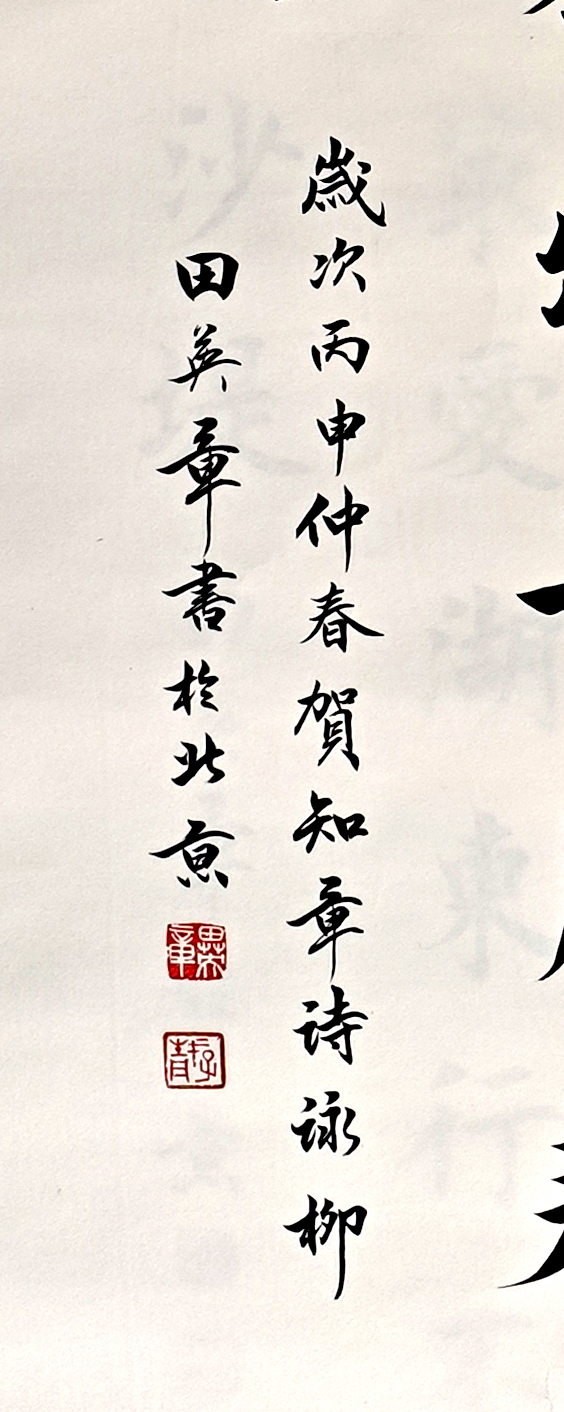 歲次丙申仲春賀知章詩詠柳
田英章書於北京
田英章